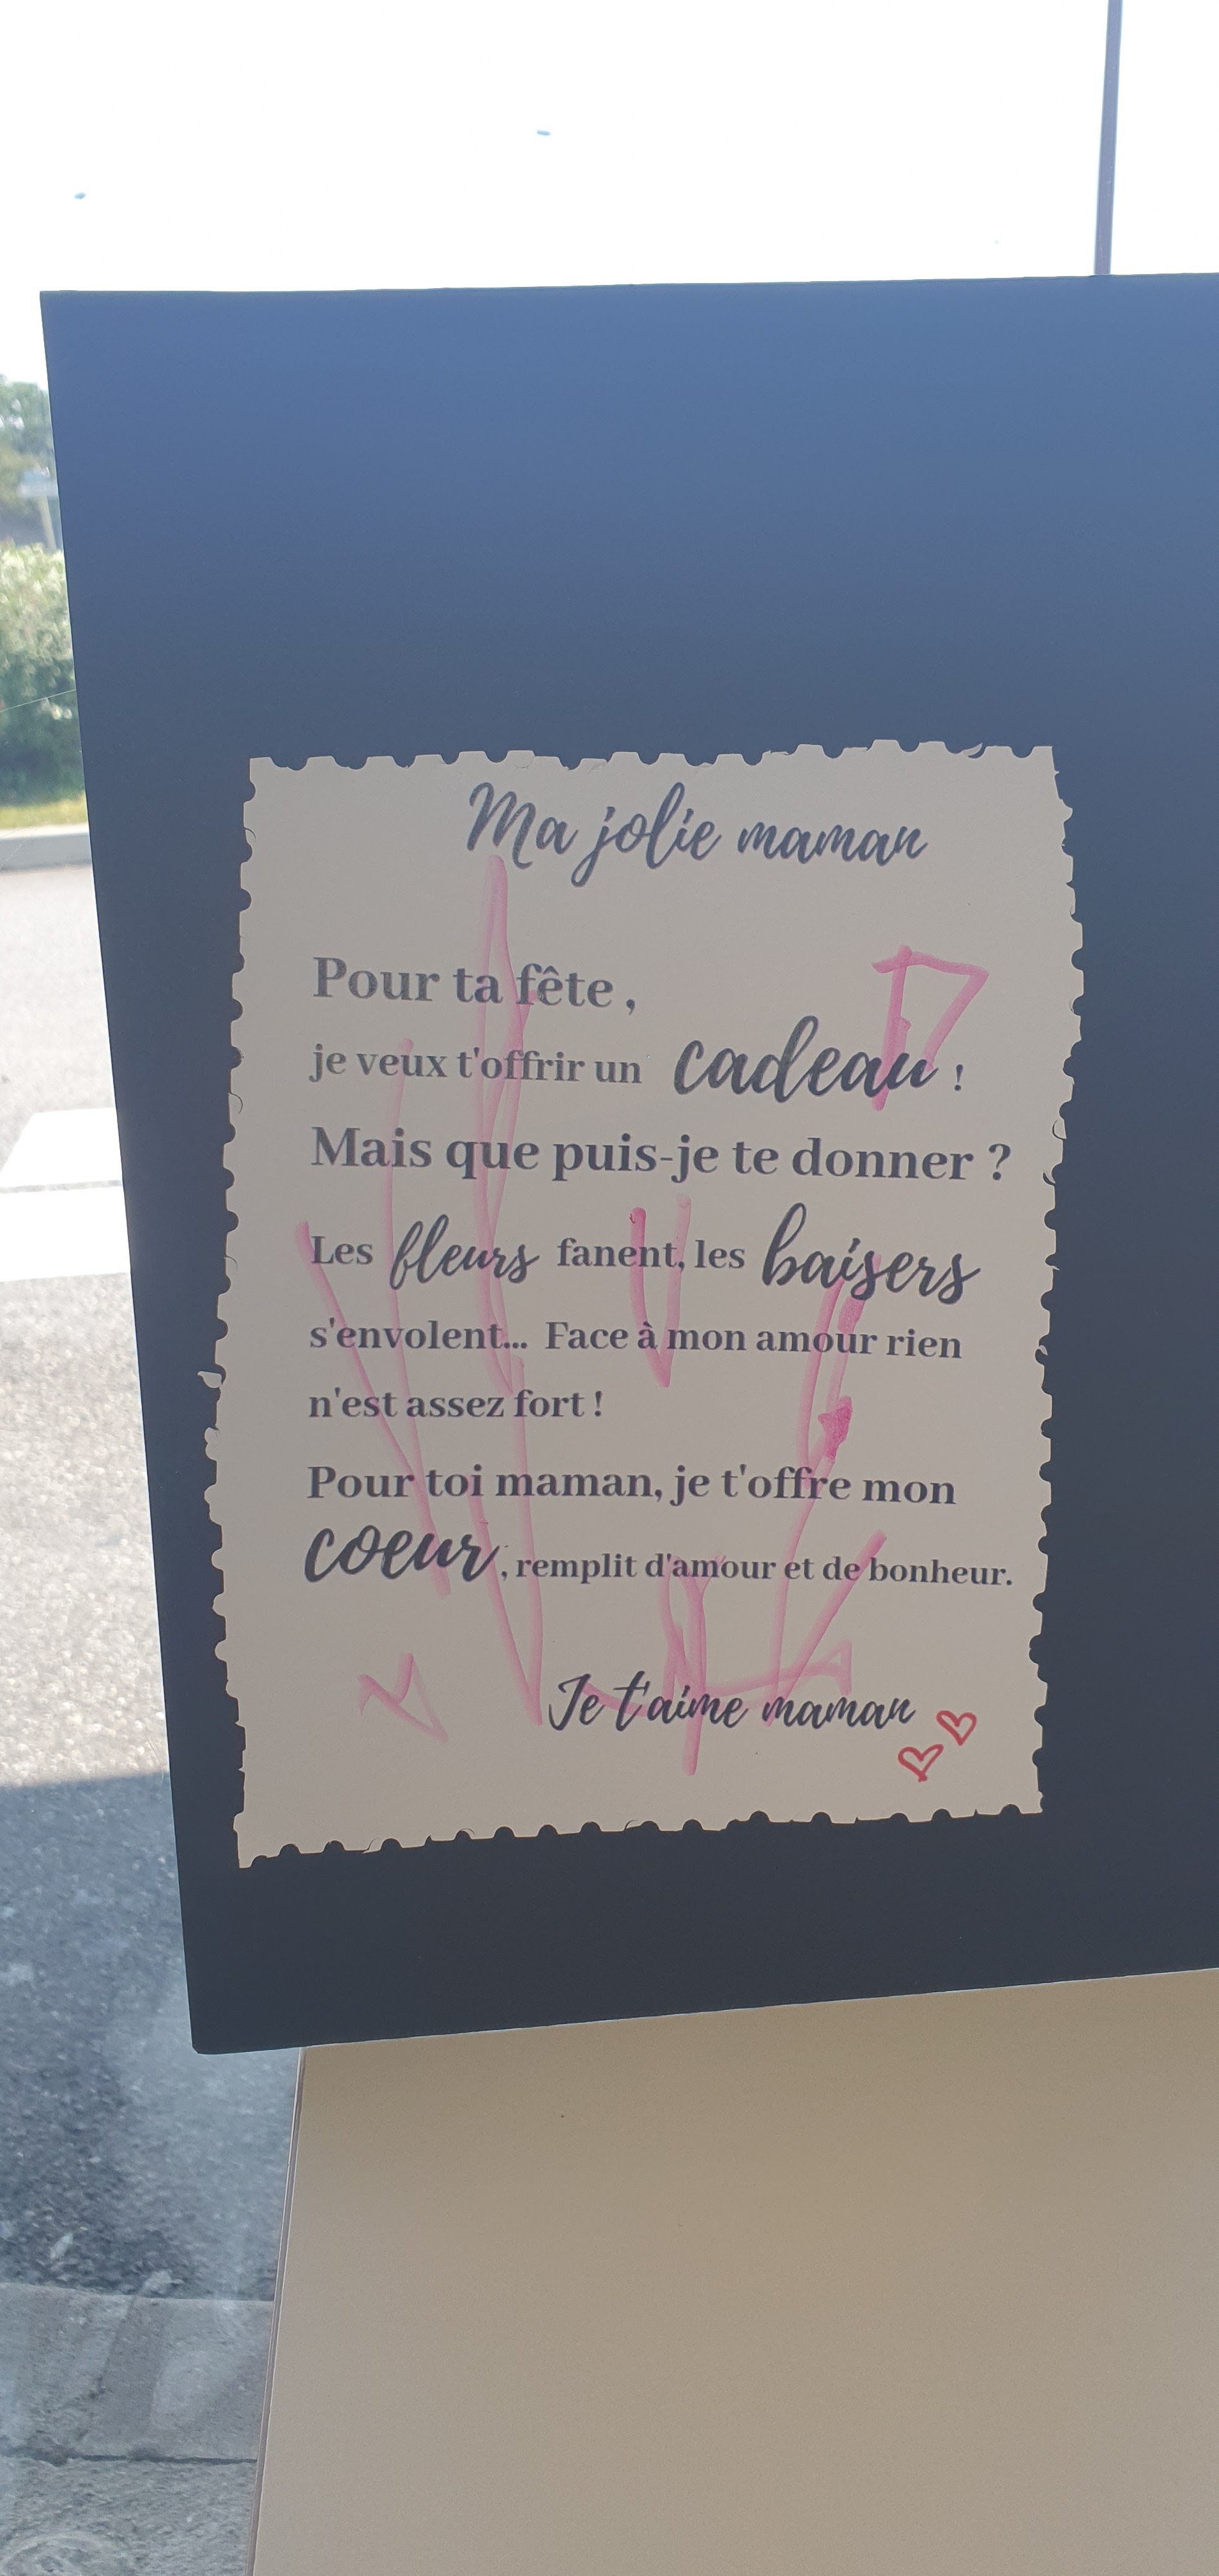 Ma jolie maman
Pour ta fête ,
je veux t'offrir un cadeau !
Mais que puis-je te donner ?
Les fleurs fanent, les baisers
s'envolent... Face à mon amour rien
n'est assez fort !
Pour toi maman, je t'offre mon
coeur, remplit d'amour et de bonheur.
Je t'aime maman